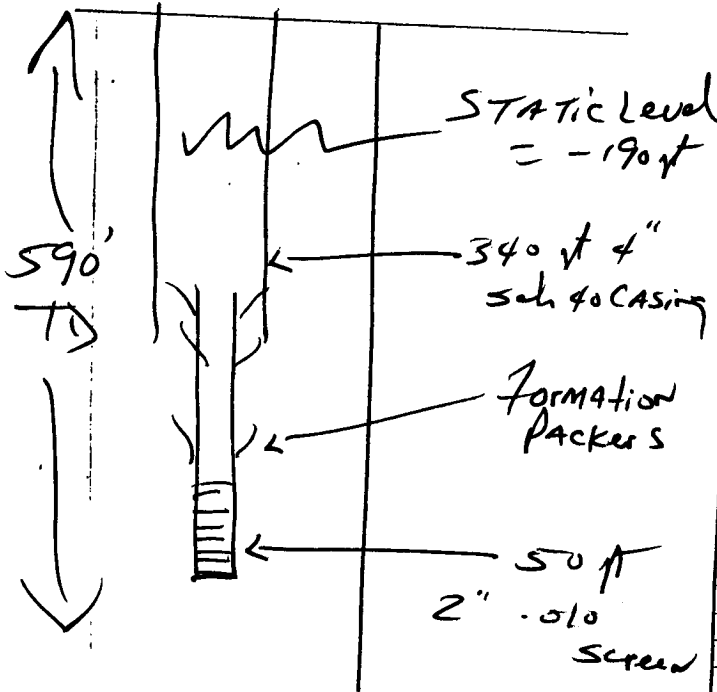 STATIC Level
= -190 ft
590'
TD
340 ft 4"
sch 40 CASING
FORMATION
PACKERS
50 ft
2" .010
screen